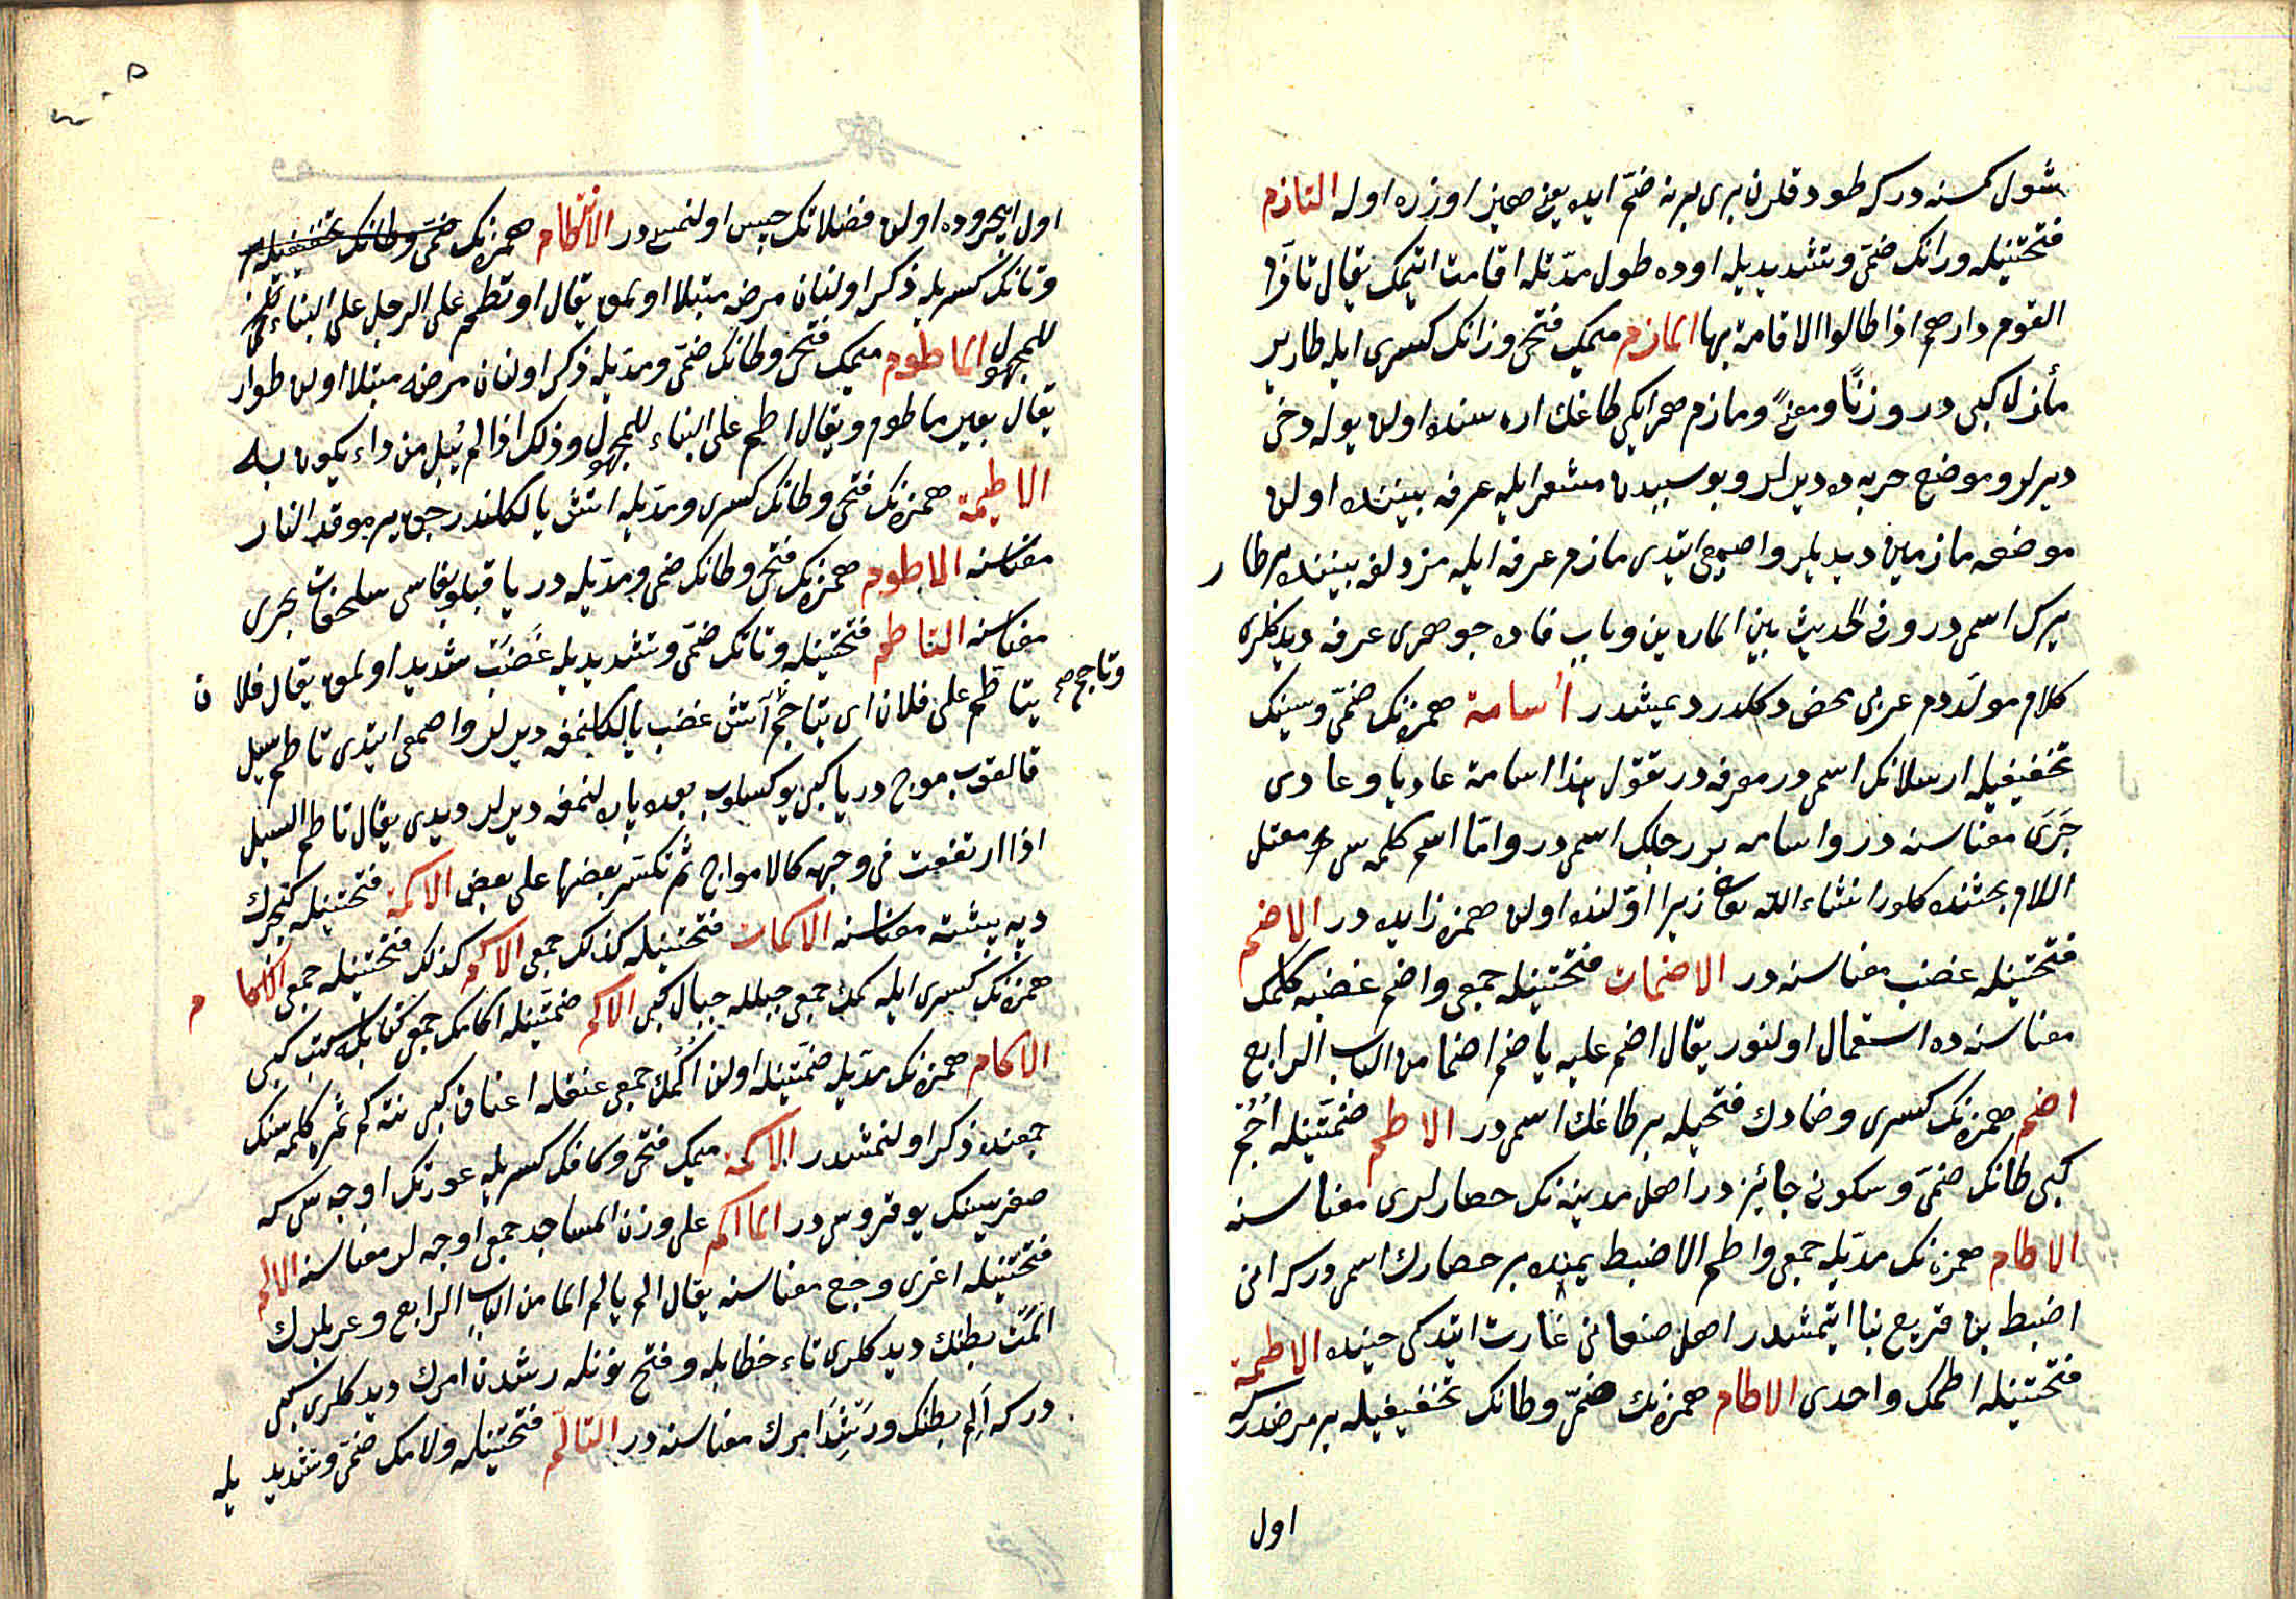 شول كمسنه در كه طودقلرن برى برنه ضمّ ايده يعنى صمغ اوزره اوله التازم
فتحتينله ورانك ضمّى وتشديديله اوده طول مدّتله اقامت اتيمك يقال تازّم
القوم دارهم اذا طالوا الاقامة بها المازم ميمك فتحى وزانك كسرى ايله طار ير
مأزل كبى در وزنًا ومعنًى ومازم هر ايكى طاغك اره سنده اولن يوله دخى
ديرلر وموضع حربه ده ديرلر وبو سببدن مشعر ايله عرفه بيننده اولن
موضعه مازمين ديديلر واصمعى ايتدى مازم عرفه ايله مزدلفه بيننده بر طار
يرك اسمى در وفى الحديث بين المازمين وباب فاده جوهرى عرفه ديدكلرى
كلام مولّددم عربى محض دكلدر ديمشدر أسامة همزه نك ضمّى وسينك
تخفيفيله ارسلانك اسمى در معرفه در تقول هذا اسامة عاديا وعادى
جَرَى معناسنه در واسامه بر رجلك اسمى در وامّا اسم كلمه سى معتل
اللام بحثنده كلور انشاء الله تعالى زيرا اوّلنده اولن همزه زايده در الاضم
فتحتينله غضب معناسنه در الاضمات فتحتينله جمعى واضم غضبه كلمك
معناسنه ده استعمال اولنور يقال اضم عليه ياضم اضما من الباب الرابع
اضم همزه نك كسرى وضادك فتحيله بر طاغك اسمى در الاطم ضمّتينله اُجُم
كبى طانك ضمّى وسكونى جائز در اهل مدينه نك حصارلرى معناسنه
الاطام همزه نك مدّيله جمعى واطم الاضبط يمنده بر حصارك اسمى در كه انى
اضبط بن قريع بنا ايتمشدر اهل صنعائى غارت ايتدكى حينده الاطمة
فتحتينله اطمك واحدى الاطام همزه نك ضمّى وطانك تخفيفيله بر مرضدر كه
اول
اول ايچروده اولن فضلاتك حبس اولنمسى در الائتطام همزه نك ضمّى وطانك تخفيفيله
وتانك كسريله ذكر اولنان مرضه مبتلا اولمق يقال اوتطم على الرجل على البناء
للمجهول الماطوم ميمك فتحى وطانك ضمّى ومدّيله ذكر اولنان مرضه مبتلا اولن طوار
يقال بعير ماطوم ويقال اطم على البناء للمجهول وذلك اذا لم يُبل من داء يكون به
الاطيمة همزه نك فتحى وطانك كسرى ومدّيله اتش يالكلندرجق ير موقد النار
معناسنه الاطوم همزه نك فتحى وطانك ضمى ومدّيله دريا قبلوبغاسى سلحفات بحرى
معناسنه التاطم فتحتينله وتانك ضمّى وتشديديله غَضَبْ شديد اولمق يقال فلان
يتاطم على فلان اى يتاجّم آتش غضب يالكلنمغه ديرلر واصمعى ايتدى تاطم سيل
وتاجم صح
قالقوب موج دريا كبى يوكسلوب بعده پاره لنمغه ديرلر ديدى يقال تاطم السيل
اذا ارتفعت فى وجهه كالامواج ثم تكسّر بعضها على بعض الاكمة فتحتينله
ديه پيشته معناسنه الاكمات فتحتينله كذلك جمعى الاكم كذلك فتحتينله جمعى الاكام
همزه نك كسرى ايله كمك جمعى جبلله جبال كبى الاكم ضمّتينله اكامك جمعى كتابله كتب كبى
الاكام همزه نك مدّيله ضمّتينله اولن اُكُمك جمعى عنقله اعناق كبى نته كم ثمره كلمه سنك
جمعنده ذكر اولنمشدر الماكمة ميمك فتحى وكافك كسريله عورتك اوجه سى كه
صغريسنك يوقروسى در الماكم على وزن المساجد جمعى اوجه لر معناسنه الالم
فتحتينله اغرى وجع معناسنه يقال الم يالم الما من الباب الرابع وعربلرك
اَلمتَ بطنك ديدكلرى تاء خطابله وفتح نونله رشدت امرك ديدكلرى كبى
در كه اَلِم بطنك ورَشِدَ امرك معناسنه در التالّم فتحتينله ولامك ضمّى وتشديديله